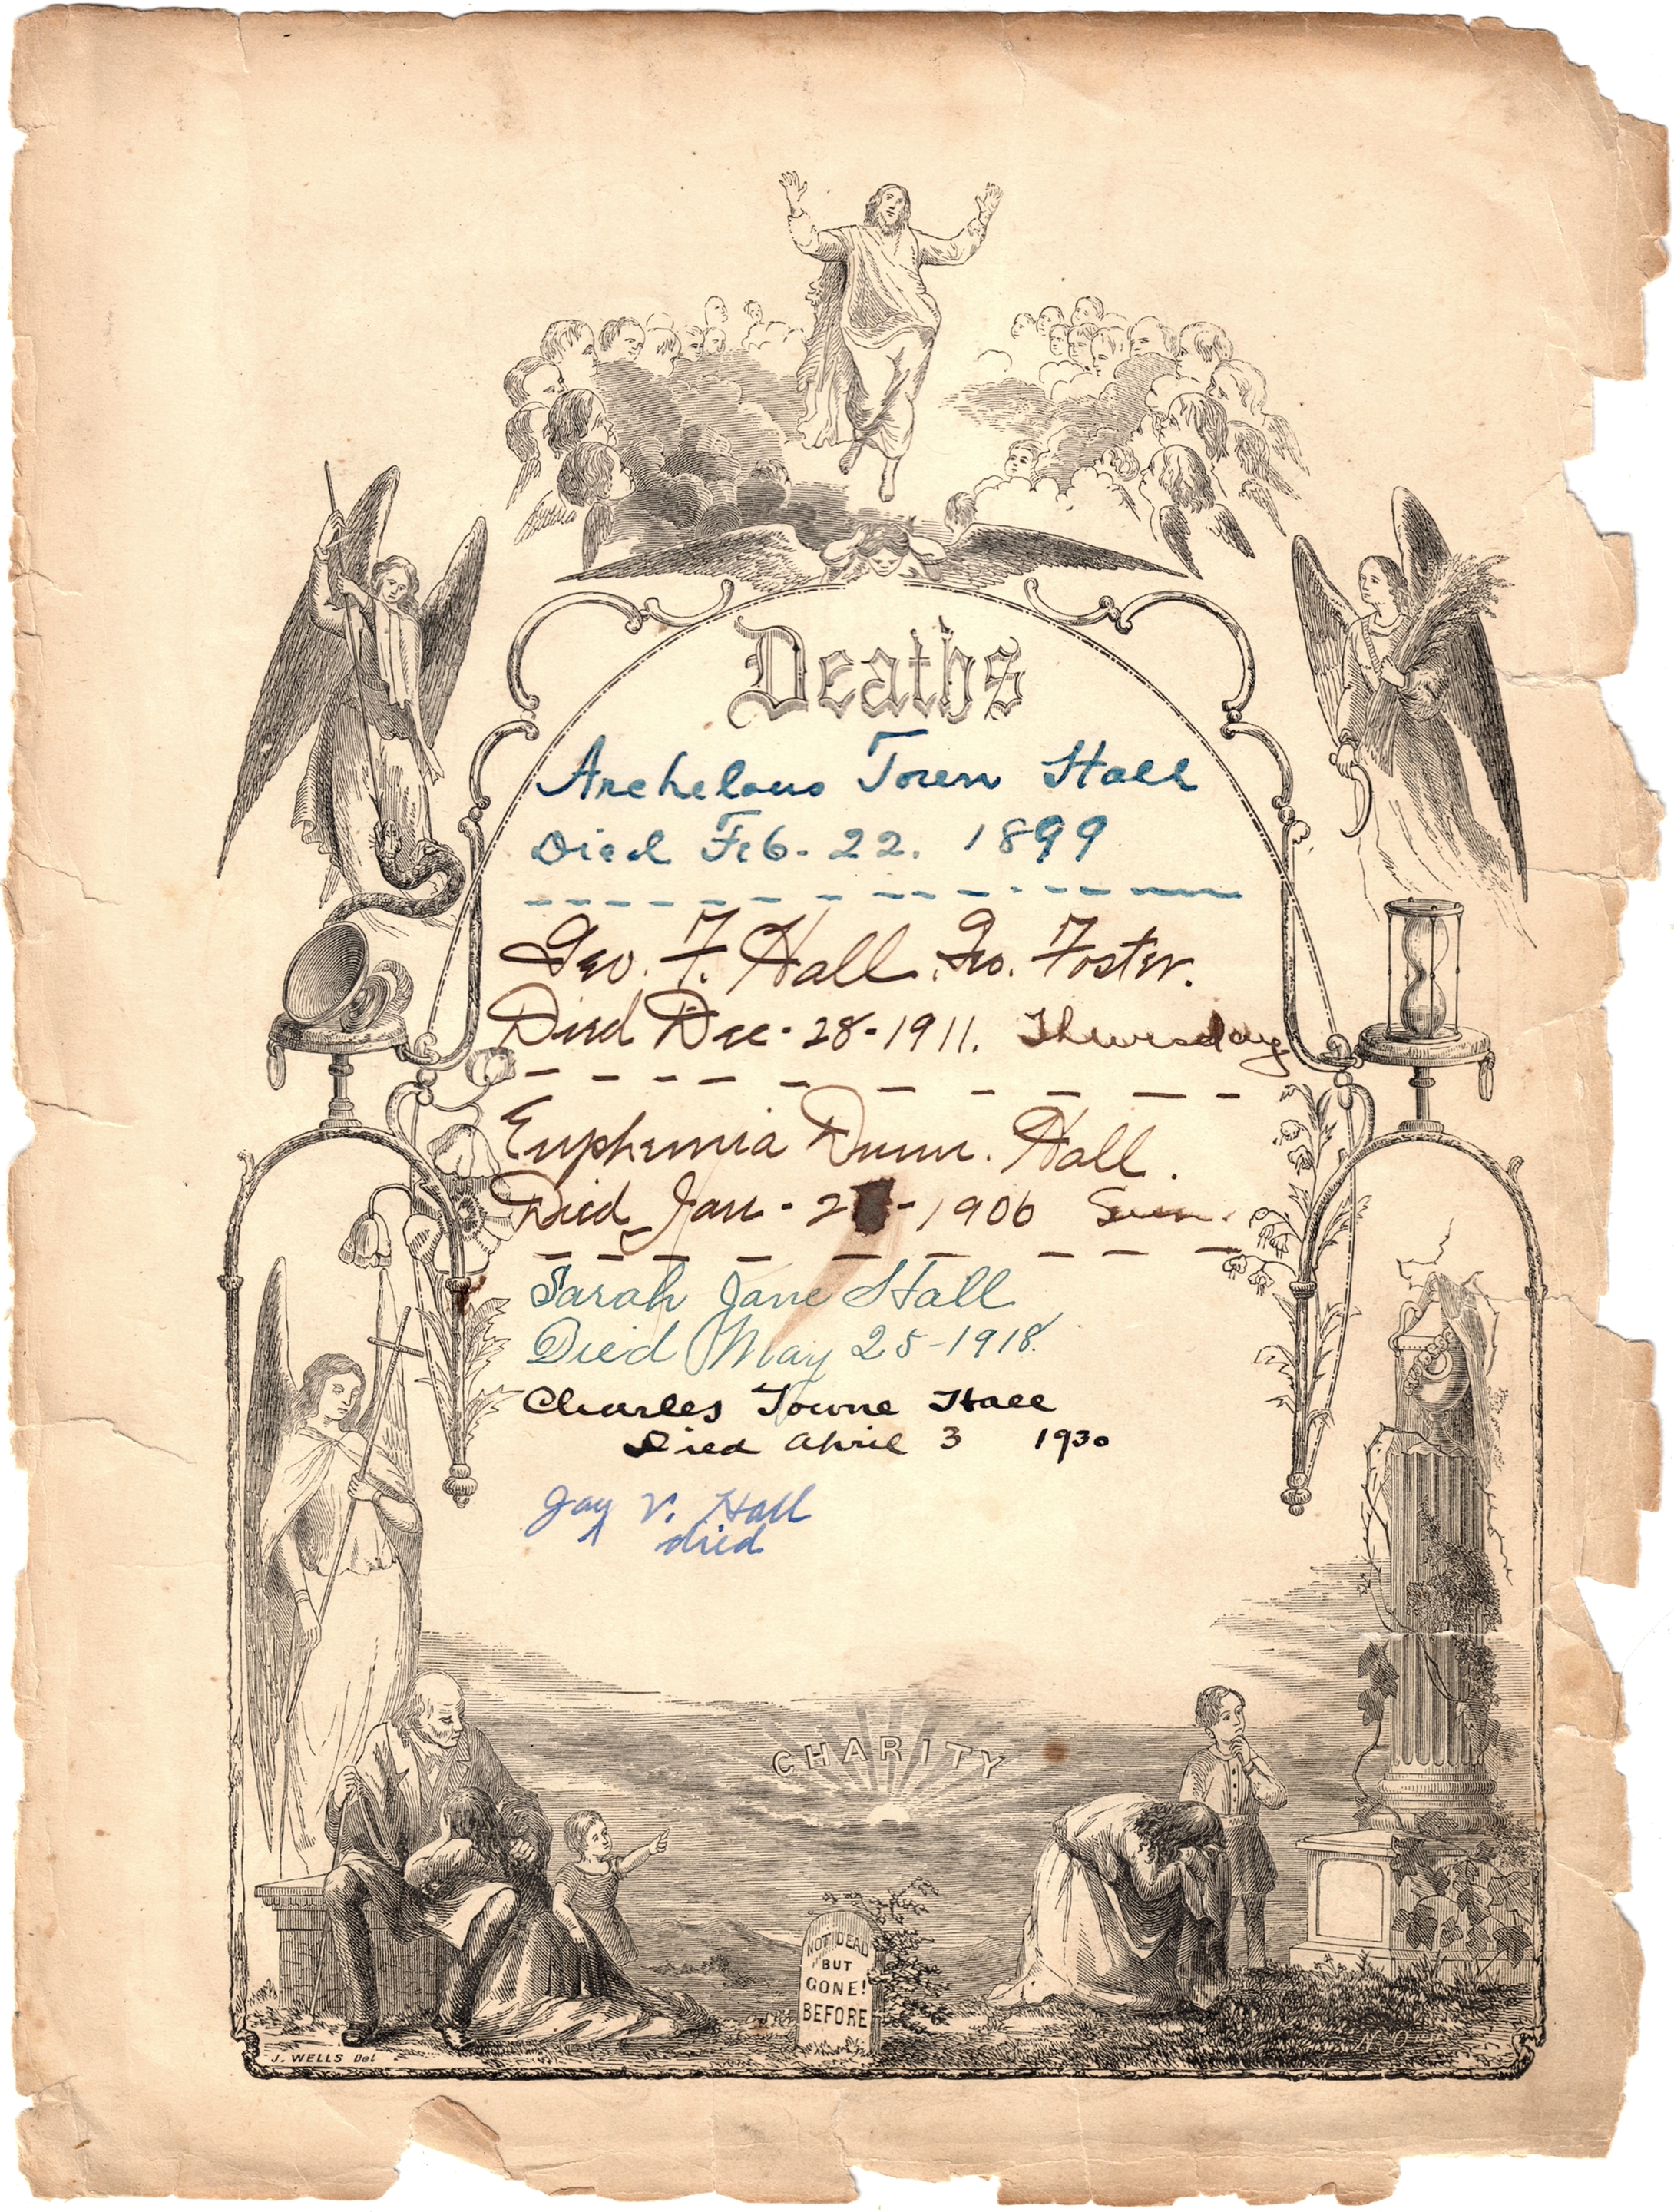 Deaths
Archelaus Town Hall
Died Feb. 22. 1899
Geo. F. Hall. Geo. Foster.
Died Dec. 28-1911. Thuresday
Euphemia Dunn. Hall.
Died Jan. 2 -1906 Sun.
Sarah Jane Hall
Died May 25-1918.
Charles Towne Hall
Died April 3 1930
Jay V. Hall
died
CHARITY
NOT DEAD
BUT
GONE!
BEFORE
J. WELLS Del